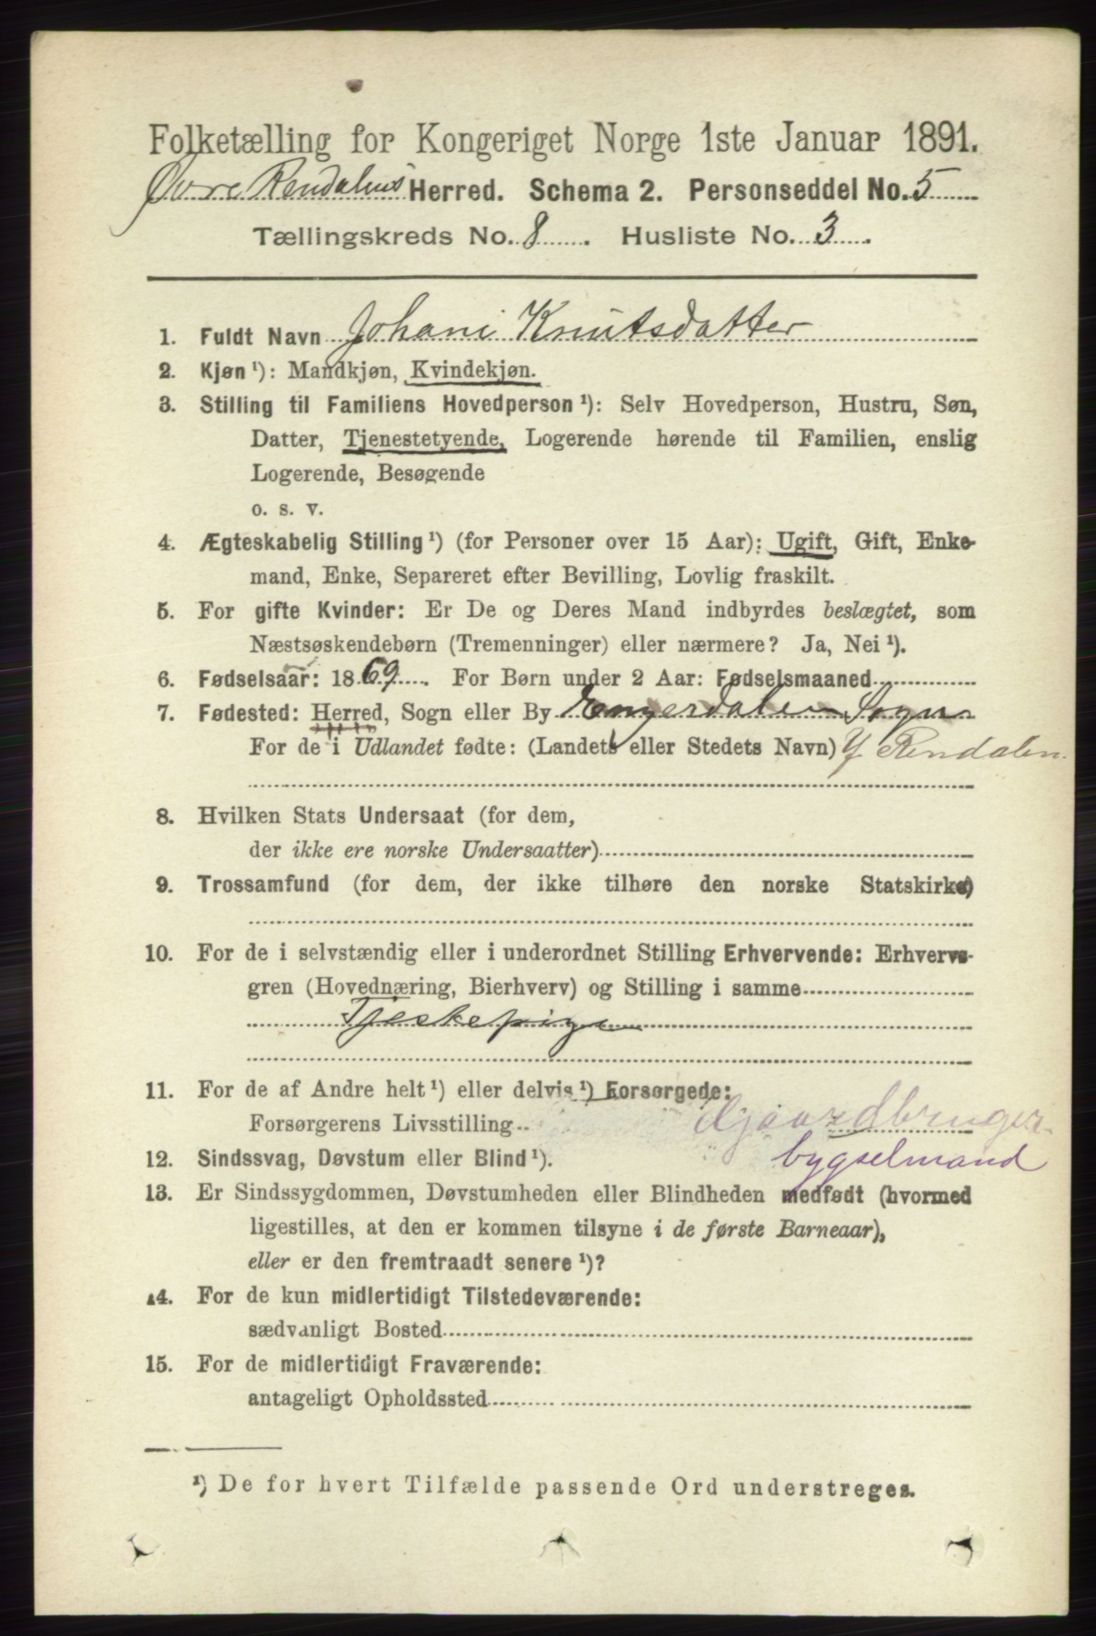 Folketælling for Kongeriget Norge 1ste Januar 1891.
Øvre Rendalens Herred. Schema 2. Personseddel No. 5
Tællingskreds No. 8. Husliste No. 3.
1. Fuldt Navn Johani Knutsdatter
2. Kjøn ¹): Mandkjøn, Kvindekjøn.
3. Stilling til Familiens Hovedperson ¹): Selv Hovedperson, Hustru, Søn,
Datter, Tjenestetyende, Logerende hørende til Familien, enslig
Logerende, Besøgende
o. s. v.
4. Ægteskabelig Stilling ¹) (for Personer over 15 Aar): Ugift, Gift, Enke-
mand, Enke, Separeret efter Bevilling, Lovlig fraskilt.
5. For gifte Kvinder: Er De og Deres Mand indbyrdes beslægtet, som
Næstsøskendebørn (Tremenninger) eller nærmere? Ja, Nei ¹).
6. Fødselsaar: 1869. For Børn under 2 Aar: Fødselsmaaned
7. Fødested: Herred, Sogn eller By Engerdalen Sogn
For de i Udlandet fødte: (Landets eller Stedets Navn) Y Rendalen
8. Hvilken Stats Undersaat (for dem,
der ikke ere norske Undersaatter)
9. Trossamfund (for dem, der ikke tilhøre den norske Statskirke)
10. For de i selvstændig eller i underordnet Stilling Erhvervende: Erhvervs-
gren (Hovednæring, Bierhverv) og Stilling i samme
Tjeskepige
11. For de af Andre helt ¹) eller delvis ¹) Forsørgede:
Forsørgerens Livsstilling Gjaardbruger
12. Sindssvag, Døvstum eller Blind ¹). bygselmand
13. Er Sindssygdommen, Døvstumheden eller Blindheden medfødt (hvormed
ligestilles, at den er kommen tilsyne i de første Barneaar),
eller er den fremtraadt senere ¹)?
14. For de kun midlertidigt Tilstedeværende:
sædvanligt Bosted
15. For de midlertidigt Fraværende:
antageligt Opholdssted
¹) De for hvert Tilfælde passende Ord understreges.